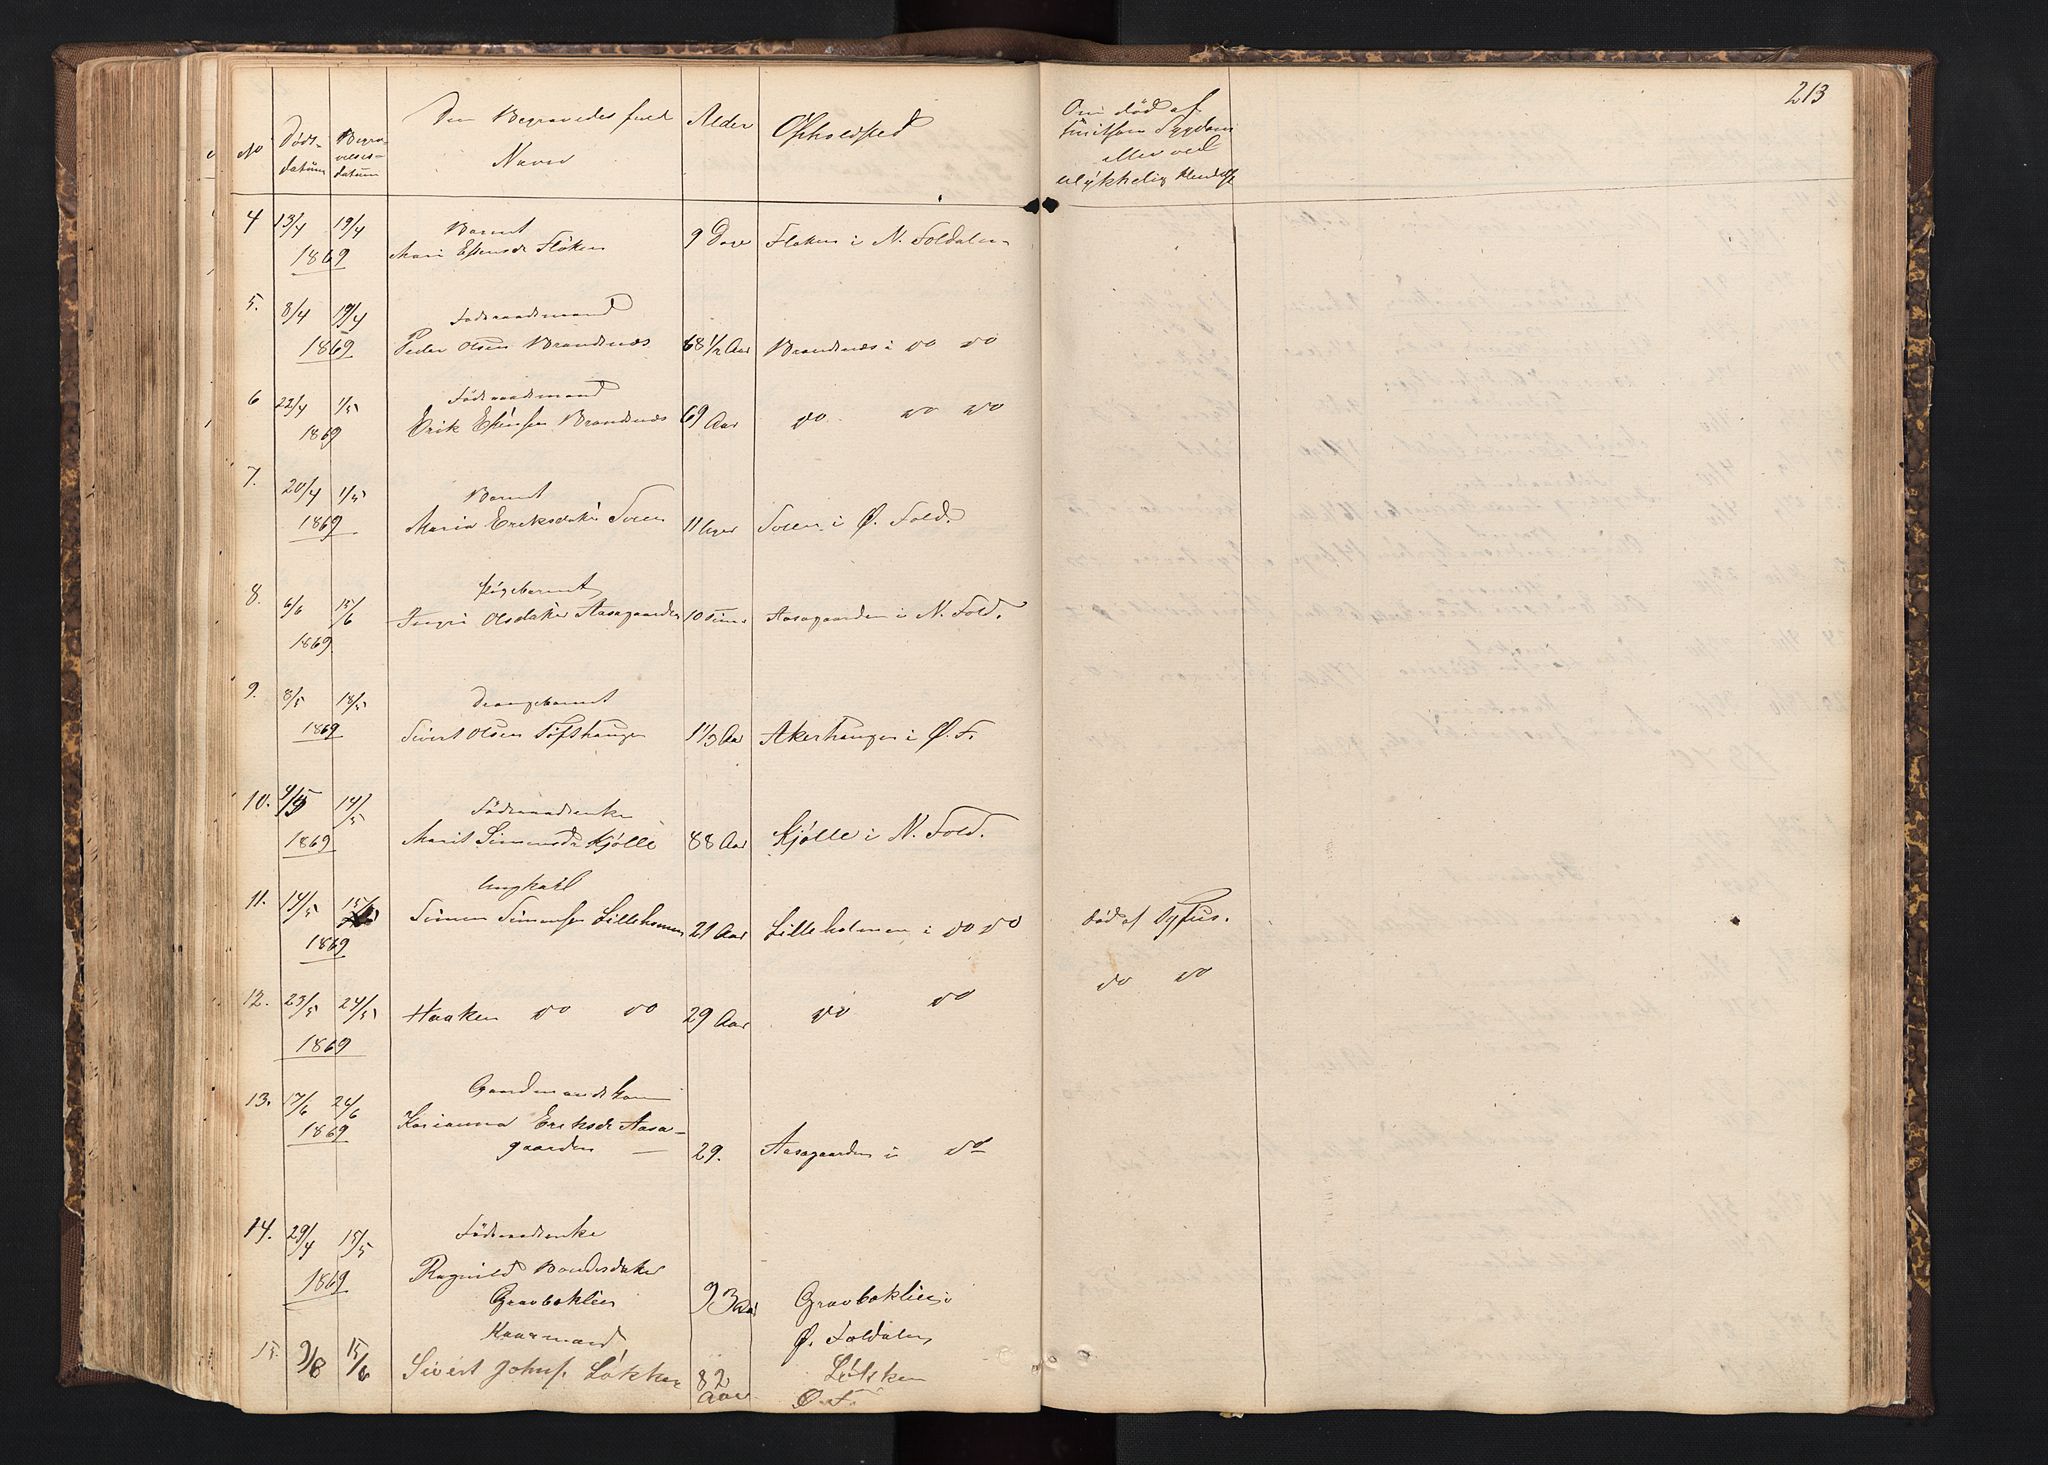 213
No Døds- datum Begravelses- datum Den Begravedes fulde Navn Alder Opholdsted Om død af smitsom Sygdom eller ved ulykkelig Hændelse
4 13/4 19/4 Barnet
1869 Mari Estensdr Floken 9 Dage Floken i N. Foldalen
5. 8/4 19/4 Føderaadsmand
1869 Peder Olsen Brandnæs 68 1/2 Aar Brandnæs i do do
6 22/4 1/5 Føderaadsmand
1869 Erik Estensen Brandnæs 69 Aar do do do
7. 20/4 1/5 Barnet
1869 Maria Eriksdatter Soen 11 Uger Soen i Ø. Fold.
8. 6/6 15/6 Pigebarnet
1869 Ingri Olsdatter Aasagaarden 10 Aasagaarden i N. Fold.
9. 8/5 18/5 Drengebarnet
1869 Sivert Olsen Tofthaugen 1 1/3 Aar Akerhaugen i Ø. F.
10. 14/5 Føderaadsenke
1869 Marit Simensdr Kjølle 88 Aar Kjølle i N. Fold.
11. 14/5 Ungkarl
1869 Simen Simensen Lilleholmen 21 Aar Lilleholmen i do do Død af Tyfus.
12. 23/5 24/5 Haaken do do 29 Aar do do do do
1869
13. 17/6 26/6 Gaardmandskone
1869 Karianna Eriksdr Aasa-
gaarden 29. Aasagaarden i do
14. 29/4 15/5 Føderaadsenke
1869 Ragnild Baardsdatter
Gravbaklien 93 Aar Gravbaklien i
Ø. Foldalen
15. 9/8 15/6 Kaarmand
Sivert Johns. Løkken 82 Aar Løkken
Ø. F.